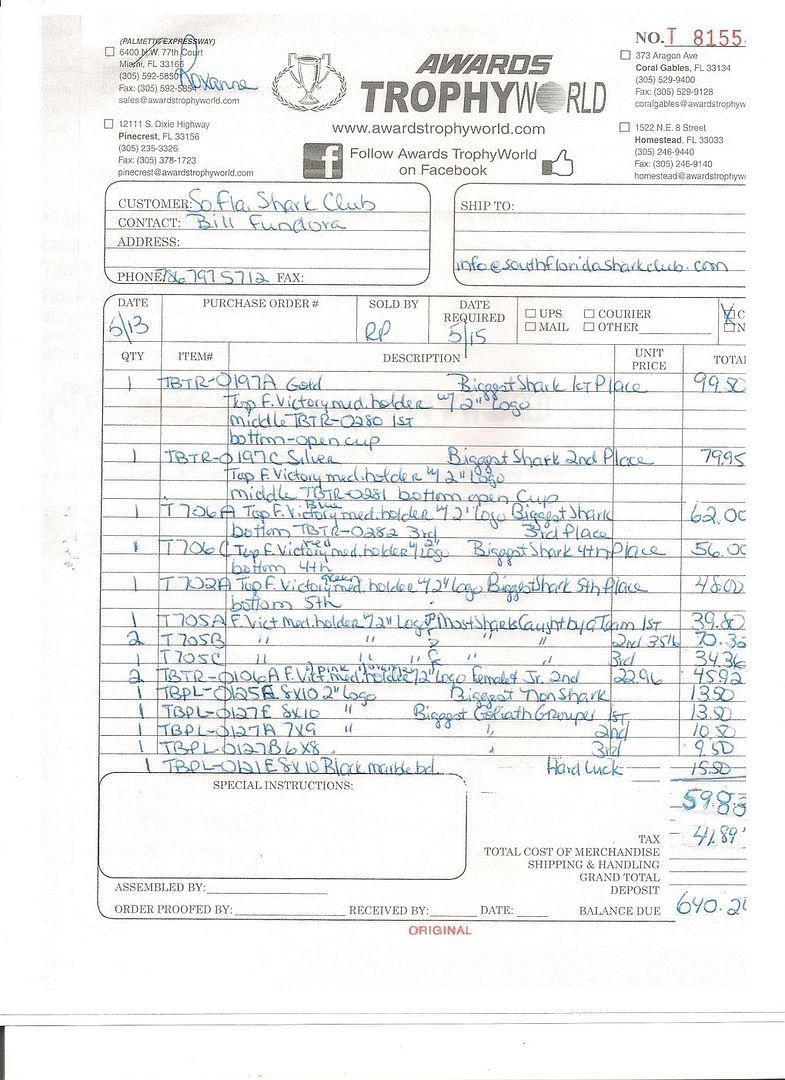 (PALMETTO EXPRESSWAY)
6400 N.W. 77th Court
Miami, FL 33166
(305) 592-5850
Fax: (305) 592-5854
sales@awardstrophyworld.com
Roxanne
12111 S. Dixie Highway
Pinecrest, FL 33156
(305) 235-3326
Fax: (305) 378-1723
pinecrest@awardstrophyworld.com
AWARDS
TROPHYWORLD
www.awardstrophyworld.com
Follow Awards TrophyWorld
on Facebook
NO. T 8155
373 Aragon Ave
Coral Gables, FL 33134
(305) 529-9400
Fax: (305) 529-9128
coralgables@awardstrophyw
1522 N.E. 8 Street
Homestead, FL 33033
(305) 246-9440
Fax: (305) 246-9140
homestead@awardstrophyw
CUSTOMER: So. Fla. Shark Club
CONTACT: Bill Fundora
ADDRESS:
PHONE: 786 797 5712 FAX:
SHIP TO:
info@southfloridasharkclub.com
DATE PURCHASE ORDER # SOLD BY DATE REQUIRED UPS COURIER C
5/13 RP 5/15 MAIL OTHER
QTY ITEM# DESCRIPTION UNIT PRICE TOTA
1 TBTR-0197A Gold Biggest Shark 1st Place 99.50
Top F. Victory med. holder w/ 2" Logo
middle TBTR-0280 1ST
bottom-open cup
1 TBTR-0197C Silver Biggest Shark 2nd Place 79.95
Top F. Victory med. holder w/ 2" Logo
middle TBTR-0281 bottom open Cup
1 T706A Top F. Victory Blue med. holder w/ 2" Logo Biggest Shark 62.00
bottom TBTR-0282 3rd 3rd Place
1 T706C Top F. Victory red med. holder w/ 2" Logo Biggest Shark 4th Place 56.00
bottom 4th
1 T702A Top F. Victory green med. holder w/ 2" Logo Biggest Shark 5th Place 48.00
bottom 5th
1 T705A F. Vict Med. holder w/ 2" Logo Most Sharks Caught by a Team 1ST 39.80
2 T705B " " " " 2nd 70.3
1 T705C " " " " 3rd 34.36
2 TBTR-0106A F. Vict. med. holder w/ 2" Logo Female & Jr. 2nd 22.96 45.92
1 TBPL-0125E 8x10 2" Logo Biggest Non Shark 13.50
1 TBPL-0127E 8x10 " Biggest Goliath Grouper 1ST 13.50
1 TBPL-0127A 7x9 " " 2nd 10.50
1 TBPL-0127B 6x8 " 3rd 9.50
1 TBPL-0121E 8x10 Black marble bd. Hard Luck 15.50
SPECIAL INSTRUCTIONS:
59.83
TAX 41.89
TOTAL COST OF MERCHANDISE
SHIPPING & HANDLING
GRAND TOTAL
DEPOSIT
ASSEMBLED BY:
ORDER PROOFED BY: RECEIVED BY: DATE: BALANCE DUE 640.2
ORIGINAL